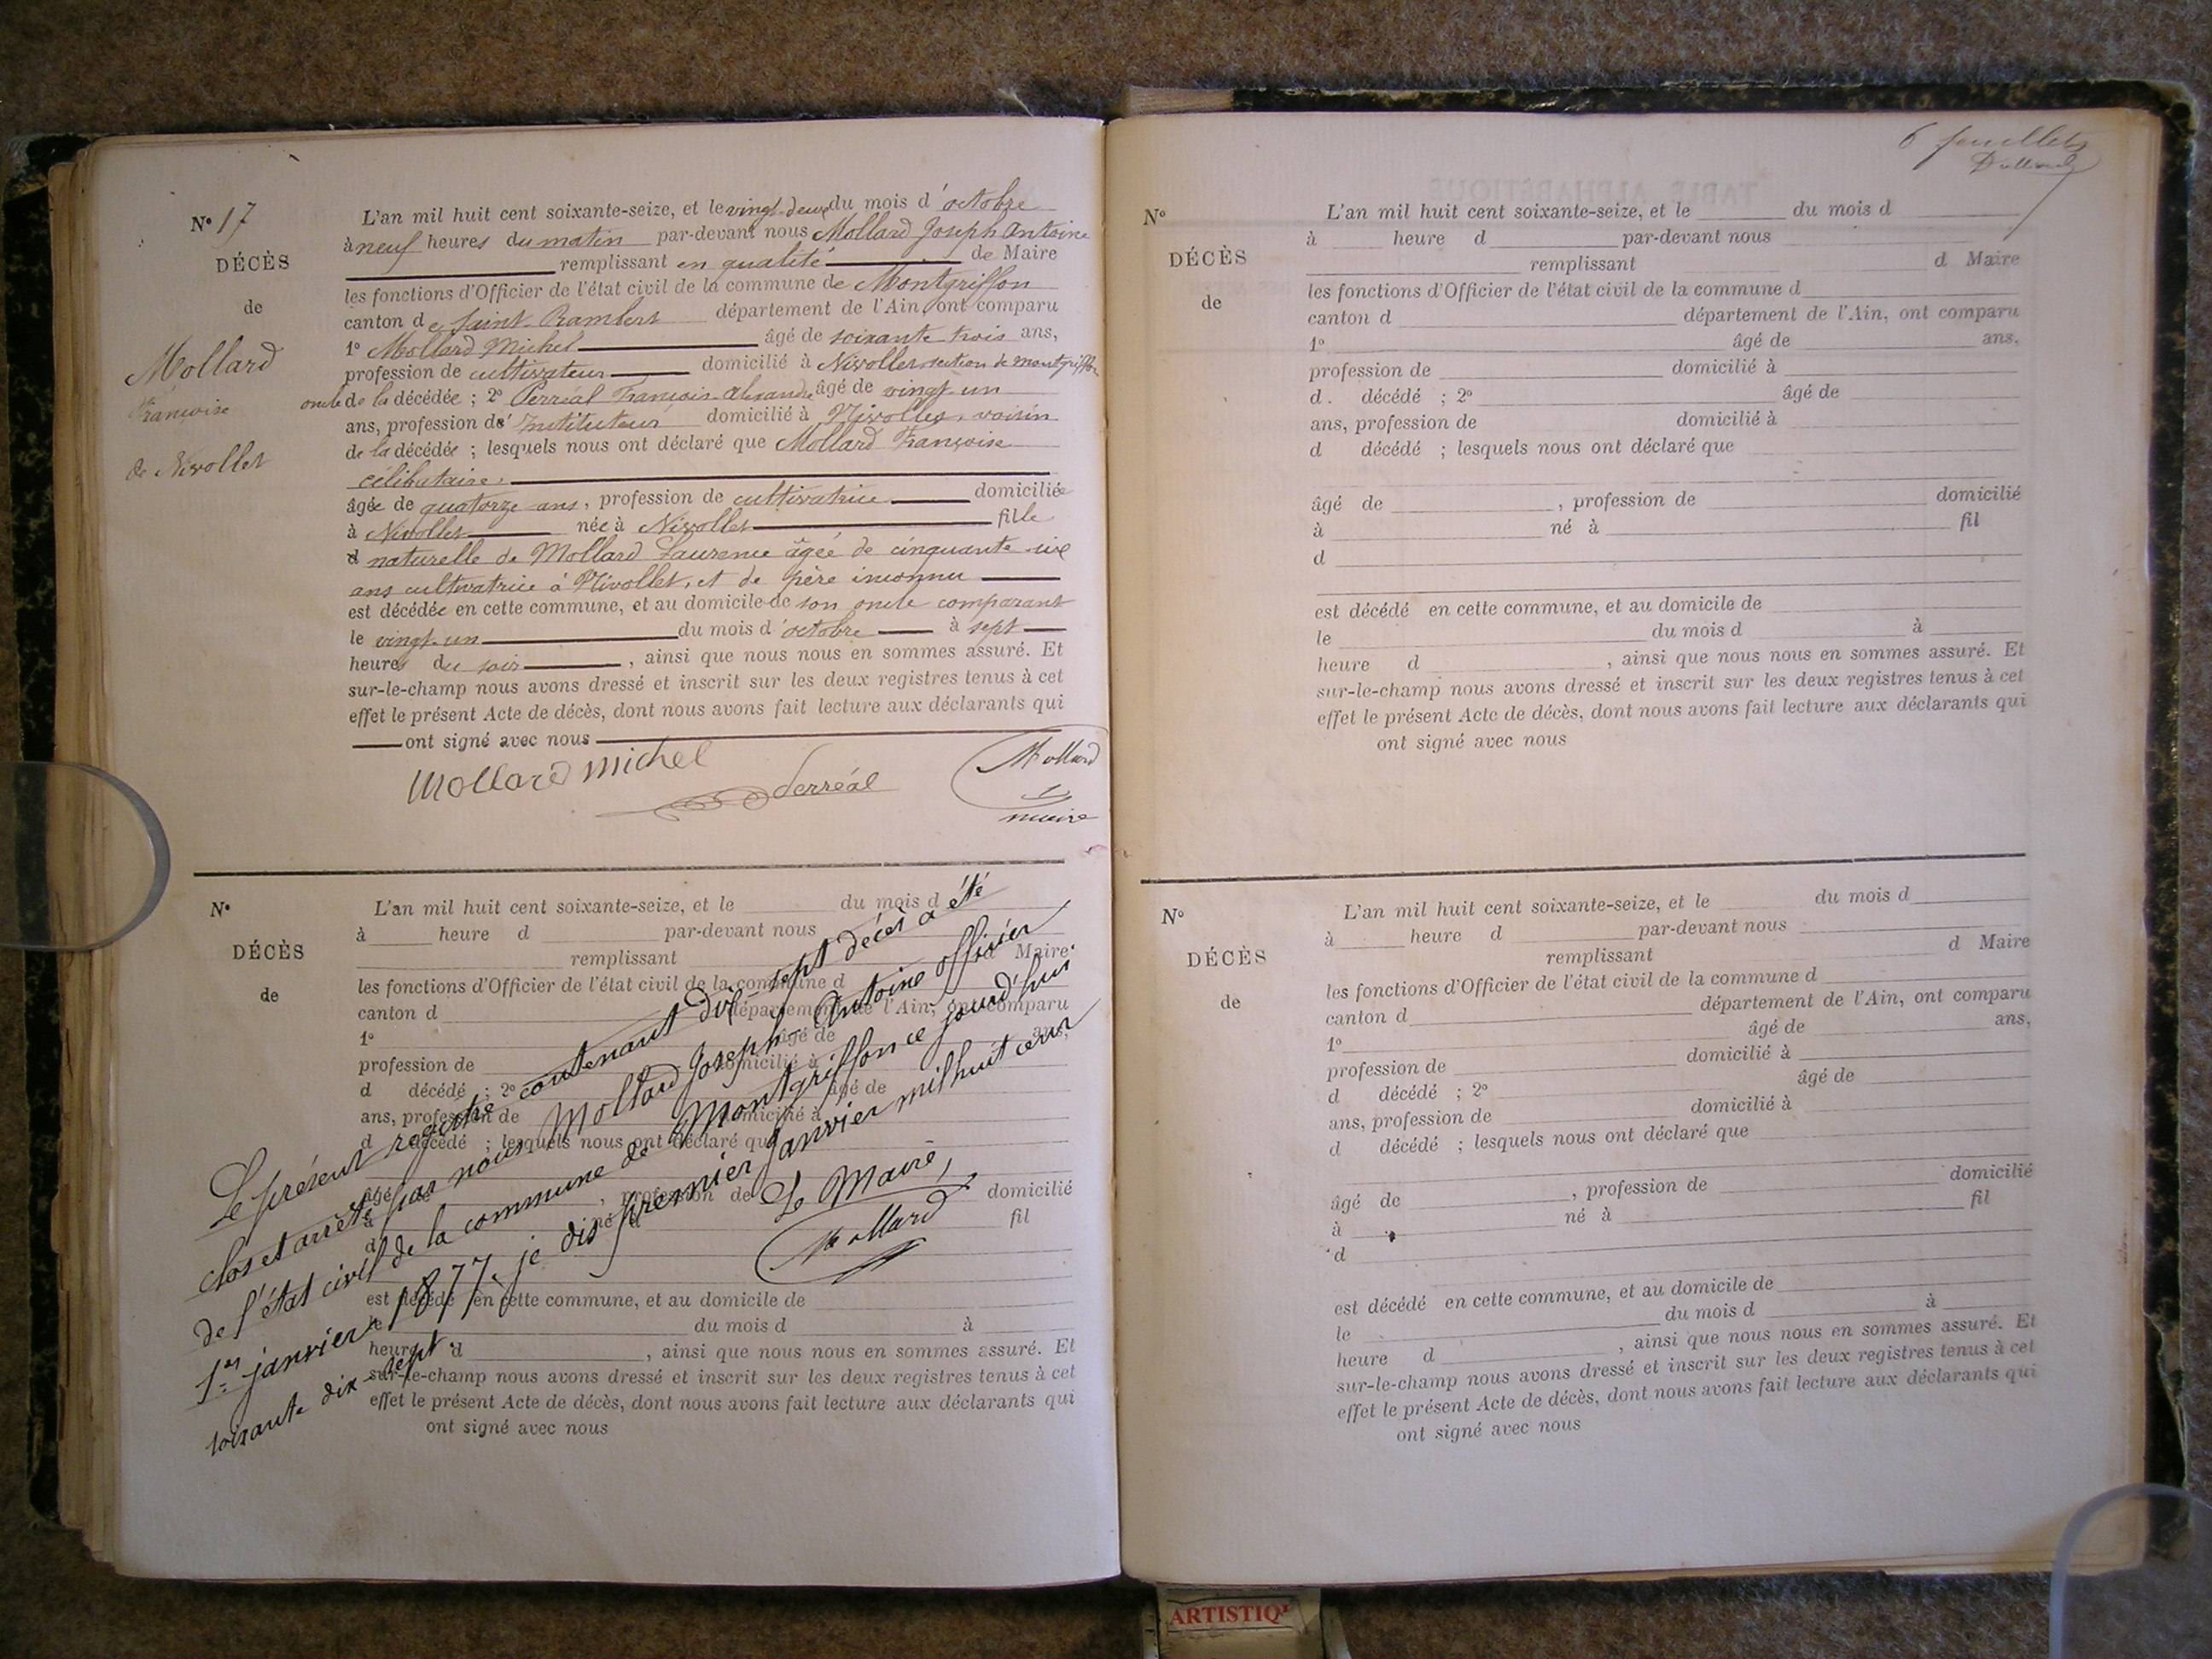 N° 17
DÉCÈS
de
Mollard
Françoise
de Nivollet
L'an mil huit cent soixante-seize, et le vingt-deux du mois d'octobre
à neuf heures du matin par-devant nous Mollard Joseph Antoine
remplissant en qualité de Maire
les fonctions d'Officier de l'état civil de la commune de Montgriffon
canton de Saint-Rambert département de l'Ain, ont comparu
1° Mollard Michel âgé de soixante trois ans,
profession de cultivateur domicilié à Nivollet section de montgriffon
oncle de la décédée ; 2° Perréal François-Alexandre âgé de vingt un
ans, profession d' Instituteur domicilié à Nivollet, voisin
de la décédée ; lesquels nous ont déclaré que Mollard Françoise
célibutaire,
âgée de quatorze ans, profession de cultivatrice domiciliée
à Nivollet née à Nivollet fille
d naturelle de Mollard Laurence âgée de cinquante six
ans cultivatrice à Nivollet, et de père inconnu
est décédée en cette commune, et au domicile de son oncle comparant
le vingt-un du mois d'octobre à sept
heures du soir, ainsi que nous nous en sommes assuré. Et
sur-le-champ nous avons dressé et inscrit sur les deux registres tenus à cet
effet le présent Acte de décès, dont nous avons fait lecture aux déclarants qui
ont signé avec nous
Mollard michel
Perréal
Mollard
maire
N°
DÉCÈS
de
L'an mil huit cent soixante-seize, et le du mois d
à heure d par-devant nous
remplissant d Maire
les fonctions d'Officier de l'état civil de la commune d
canton d département de l'Ain, ont comparu
1° âgé de ans,
profession de domicilié à
d décédé ; 2° âgé de
ans, profession de domicilié à
d décédé ; lesquels nous ont déclaré que
âgé de , profession de domicilié
à né à fil
d
est décédé en cette commune, et au domicile de
le du mois d à
heure d , ainsi que nous nous en sommes assuré. Et
sur-le-champ nous avons dressé et inscrit sur les deux registres tenus à cet
effet le présent Acte de décès, dont nous avons fait lecture aux déclarants qui
ont signé avec nous
Le présent registre contenant dix-sept décès a été
clos et arrêté par nous Mollard Joseph-Antoine officier
de l'état civil de la commune de Montgriffon ce jourd'hui
1er janvier 1877. je dis premier janvier mil huit cent
soixante dix-sept.
Le Maire,
Mollard
6 feuillets
N°
DÉCÈS
de
L'an mil huit cent soixante-seize, et le du mois d
à heure d par-devant nous
remplissant d Maire
les fonctions d'Officier de l'état civil de la commune d
canton d département de l'Ain, ont comparu
1° âgé de ans,
profession de domicilié à
d. décédé ; 2° âgé de
ans, profession de domicilié à
d décédé ; lesquels nous ont déclaré que
âgé de , profession de domicilié
à né à fil
d
est décédé en cette commune, et au domicile de
le du mois d à
heure d , ainsi que nous nous en sommes assuré. Et
sur-le-champ nous avons dressé et inscrit sur les deux registres tenus à cet
effet le présent Acte de décès, dont nous avons fait lecture aux déclarants qui
ont signé avec nous
N°
DÉCÈS
de
L'an mil huit cent soixante-seize, et le du mois d
à heure d par-devant nous
remplissant d Maire
les fonctions d'Officier de l'état civil de la commune d
canton d département de l'Ain, ont comparu
1° âgé de ans,
profession de domicilié à
d décédé ; 2° âgé de
ans, profession de domicilié à
d décédé ; lesquels nous ont déclaré que
âgé de , profession de domicilié
à né à fil
d
est décédé en cette commune, et au domicile de
le du mois d à
heure d , ainsi que nous nous en sommes assuré. Et
sur-le-champ nous avons dressé et inscrit sur les deux registres tenus à cet
effet le présent Acte de décès, dont nous avons fait lecture aux déclarants qui
ont signé avec nous
ARTISTIQ